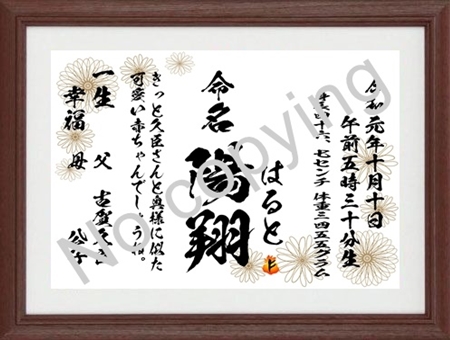 令和元年十月十日
午前五時三十分生
七センチ 体重三四五五グラム
はると
命名 陽翔
きっと久臣さんと奥様に似た
可愛い赤ちゃんでしょうね。
一生 父 古賀
幸福 母
No copying